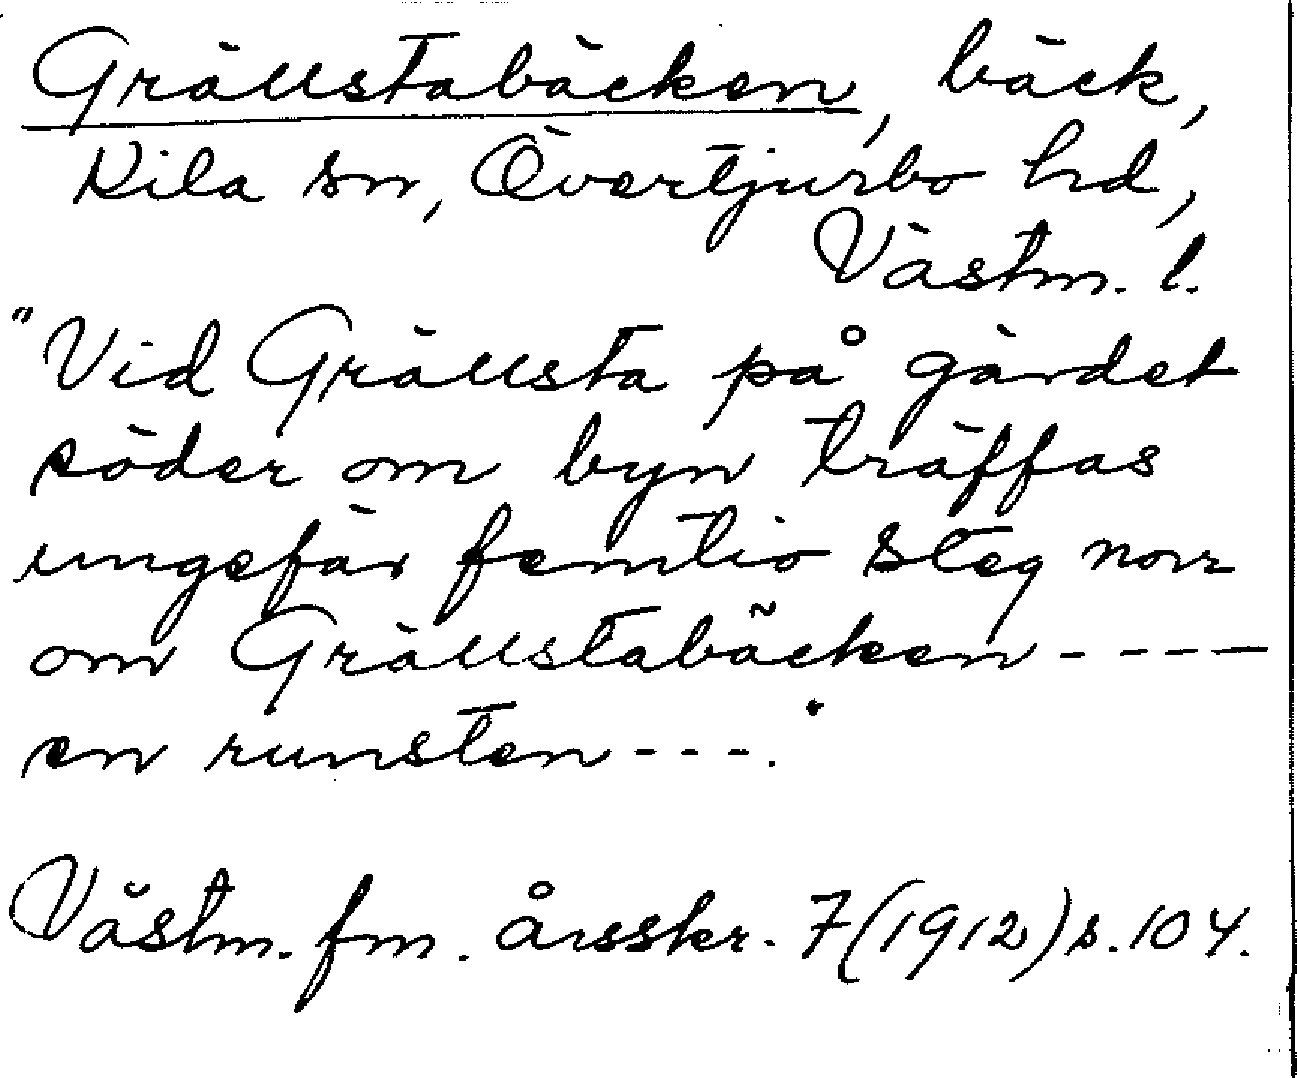 Grällstabäcken, bäck,
Kila sn, Övertjurbo hd,
Västm. l.
"Vid Grällsta på gärdet
söder om byn träffas
ungefär femtio steg norr
om Grällstabäcken - - - -
en runsten - - - .
Västm. fm. årsskr. 7 (1912) s. 104.